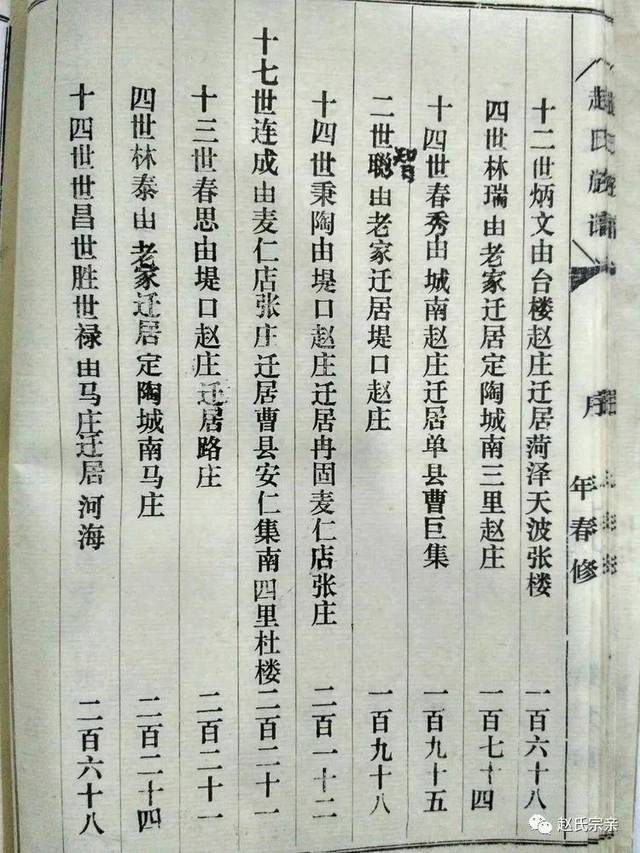 赵氏族谱
序
年春修
十二世炳文由台楼赵庄迁居菏泽天波张楼 一百六十八
四世林瑞由老家迁居定陶城南三里赵庄 一百七十四
十四世春秀由城南赵庄迁居单县曹巨集 一百九十五
二世聪智由老家迁居堤口赵庄 一百九十八
十四世秉陶由堤口赵庄迁居冉固麦仁店张庄 二百一十二
十七世连成由麦仁店张庄迁居曹县安仁集南四里杜楼 二百二十一
十三世春思由堤口赵庄迁居路庄 二百二十一
四世林泰由老家迁居定陶城南马庄 二百二十四
十四世世昌世胜世禄由马庄迁居河海 二百六十八
赵氏宗亲